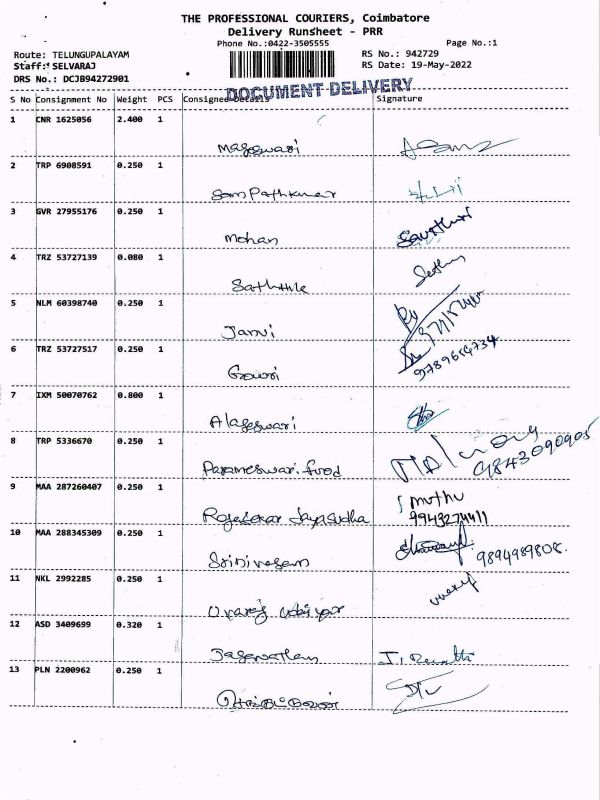 THE PROFESSIONAL COURIERS, Coimbatore
Delivery Runsheet - PRR
Phone No.:0422-3505555
Page No.:1
Route: TELUNGUPALAYAM
RS No.: 942729
Staff: SELVARAJ
RS Date: 19-May-2022
DRS No.: DCJB94272901
DOCUMENT DELIVERY
S No Consignment No Weight PCS Consignee Details Signature
1 CNR 1625056 2.400 1
Mageswari
2 TRP 6908591 0.250 1
Sampathkumar
3 GVR 27955176 0.250 1
Mohan
4 TRZ 53727139 0.080 1
Sethu
5 NLM 60398740 0.250 1
Janvi
6 TRZ 53727517 0.250 1
Gowri 9789654734
7 IXM 50070762 0.800 1
Alageswari
8 TRP 5336670 0.250 1
Parameswari food 9843090905
9 MAA 287260407 0.250 1
Rajasekar Jayasudha muthu
9943274411
10 MAA 288345309 0.250 1
Srinivasan 9894989808.
11 NKL 2992285 0.250 1
12 ASD 3409699 0.320 1
13 PLN 2200962 0.250 1